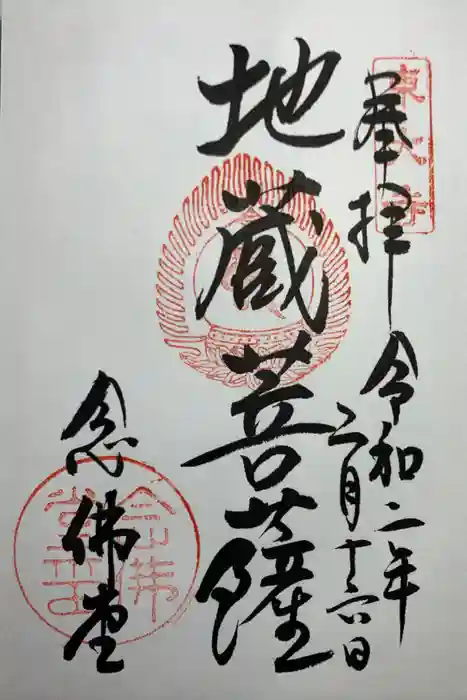 東大寺
奉拝
令和二年
二月十六日
地蔵菩薩
念佛堂
念佛堂印